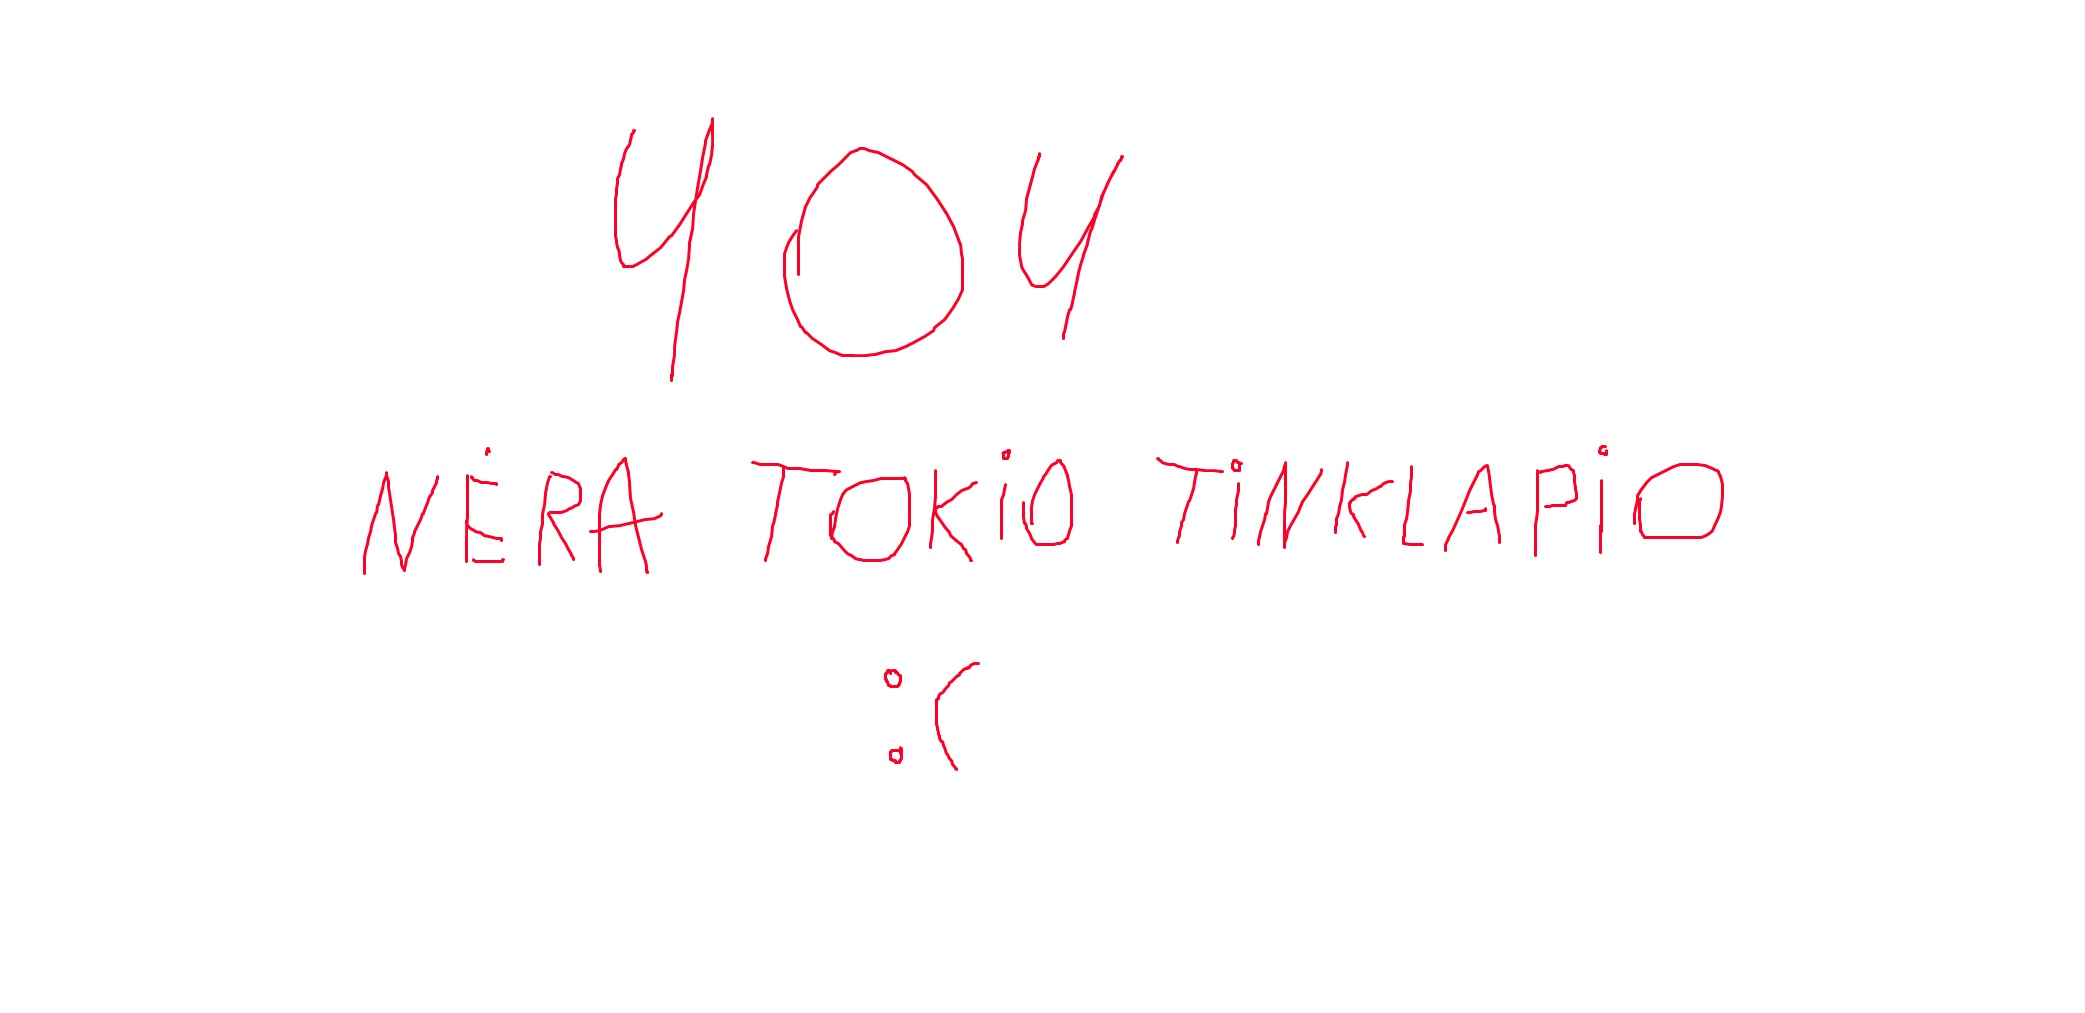 404
NĖRA TOKiO TiNKLAPiO
:(